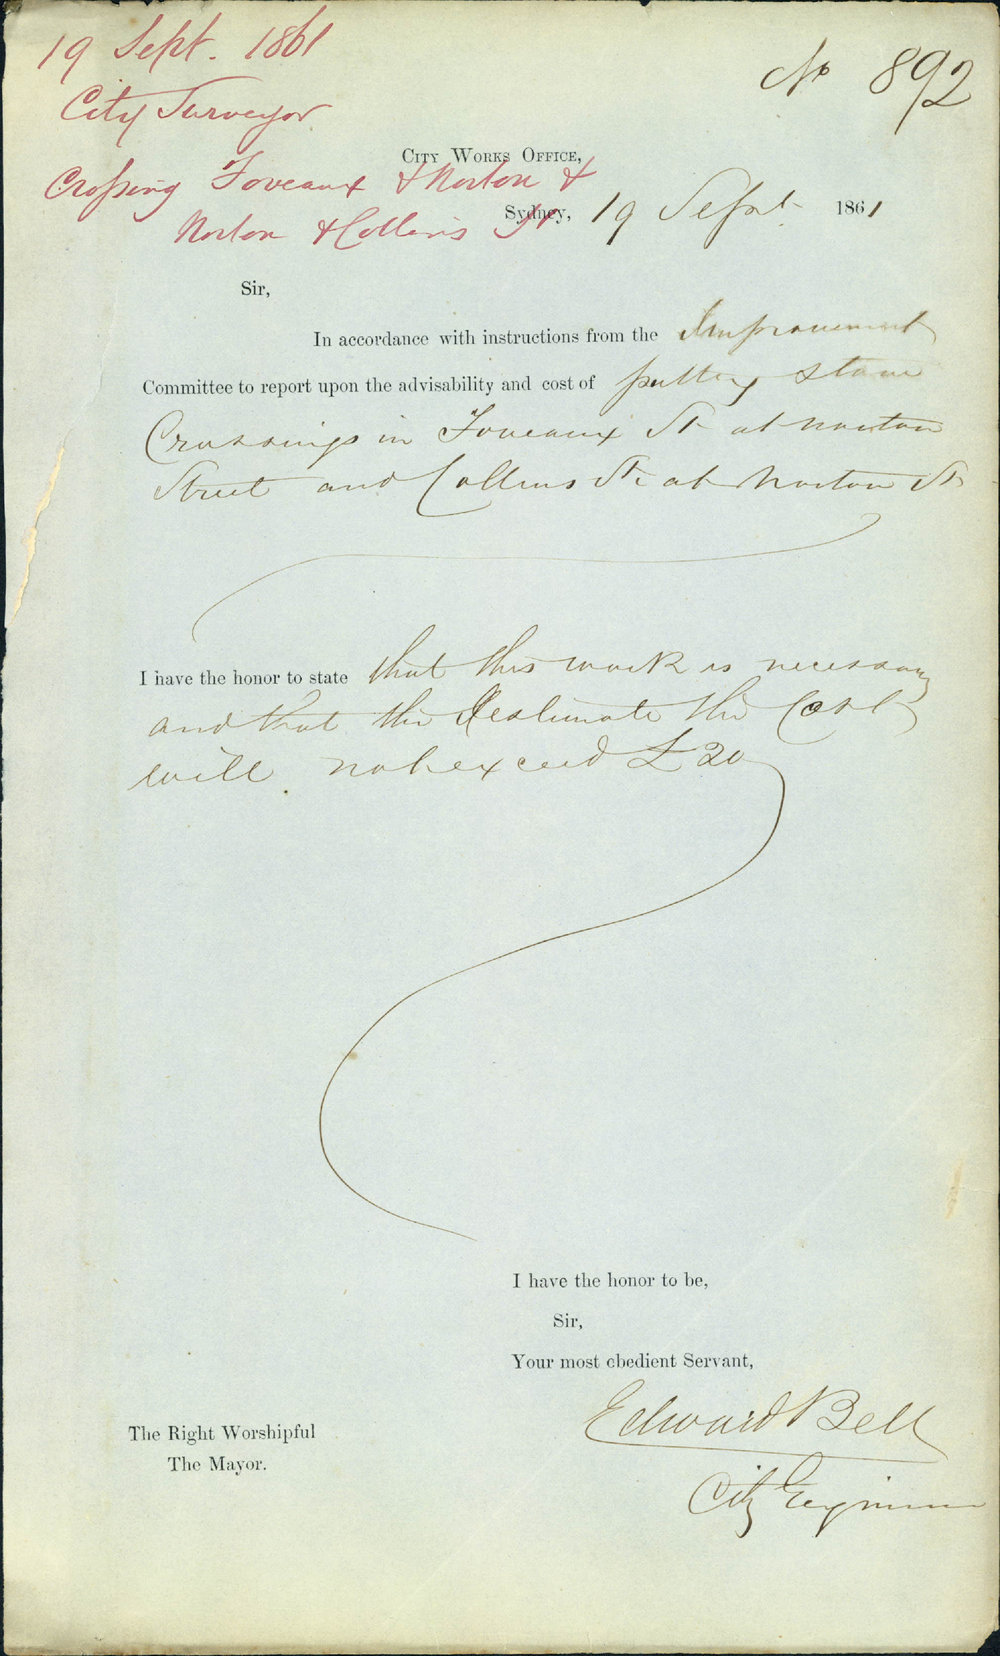 19 Sept. 1861
City Surveyor
Crossing Foveaux & Norton &
Norton & Collins St
No 892
City Works Office,
Sydney, 19 Sept 1861
Sir,
In accordance with instructions from the Improvement
Committee to report upon the advisability and cost of putting stone
Crossings in Foveaux St at Norton
Street and Collins St at Norton St
I have the honor to state that this work is necessary
and that the estimate the Cost
will not exceed £20
I have the honor to be,
Sir,
Your most obedient Servant,
Edward Bell
City Engineer
The Right Worshipful
The Mayor.